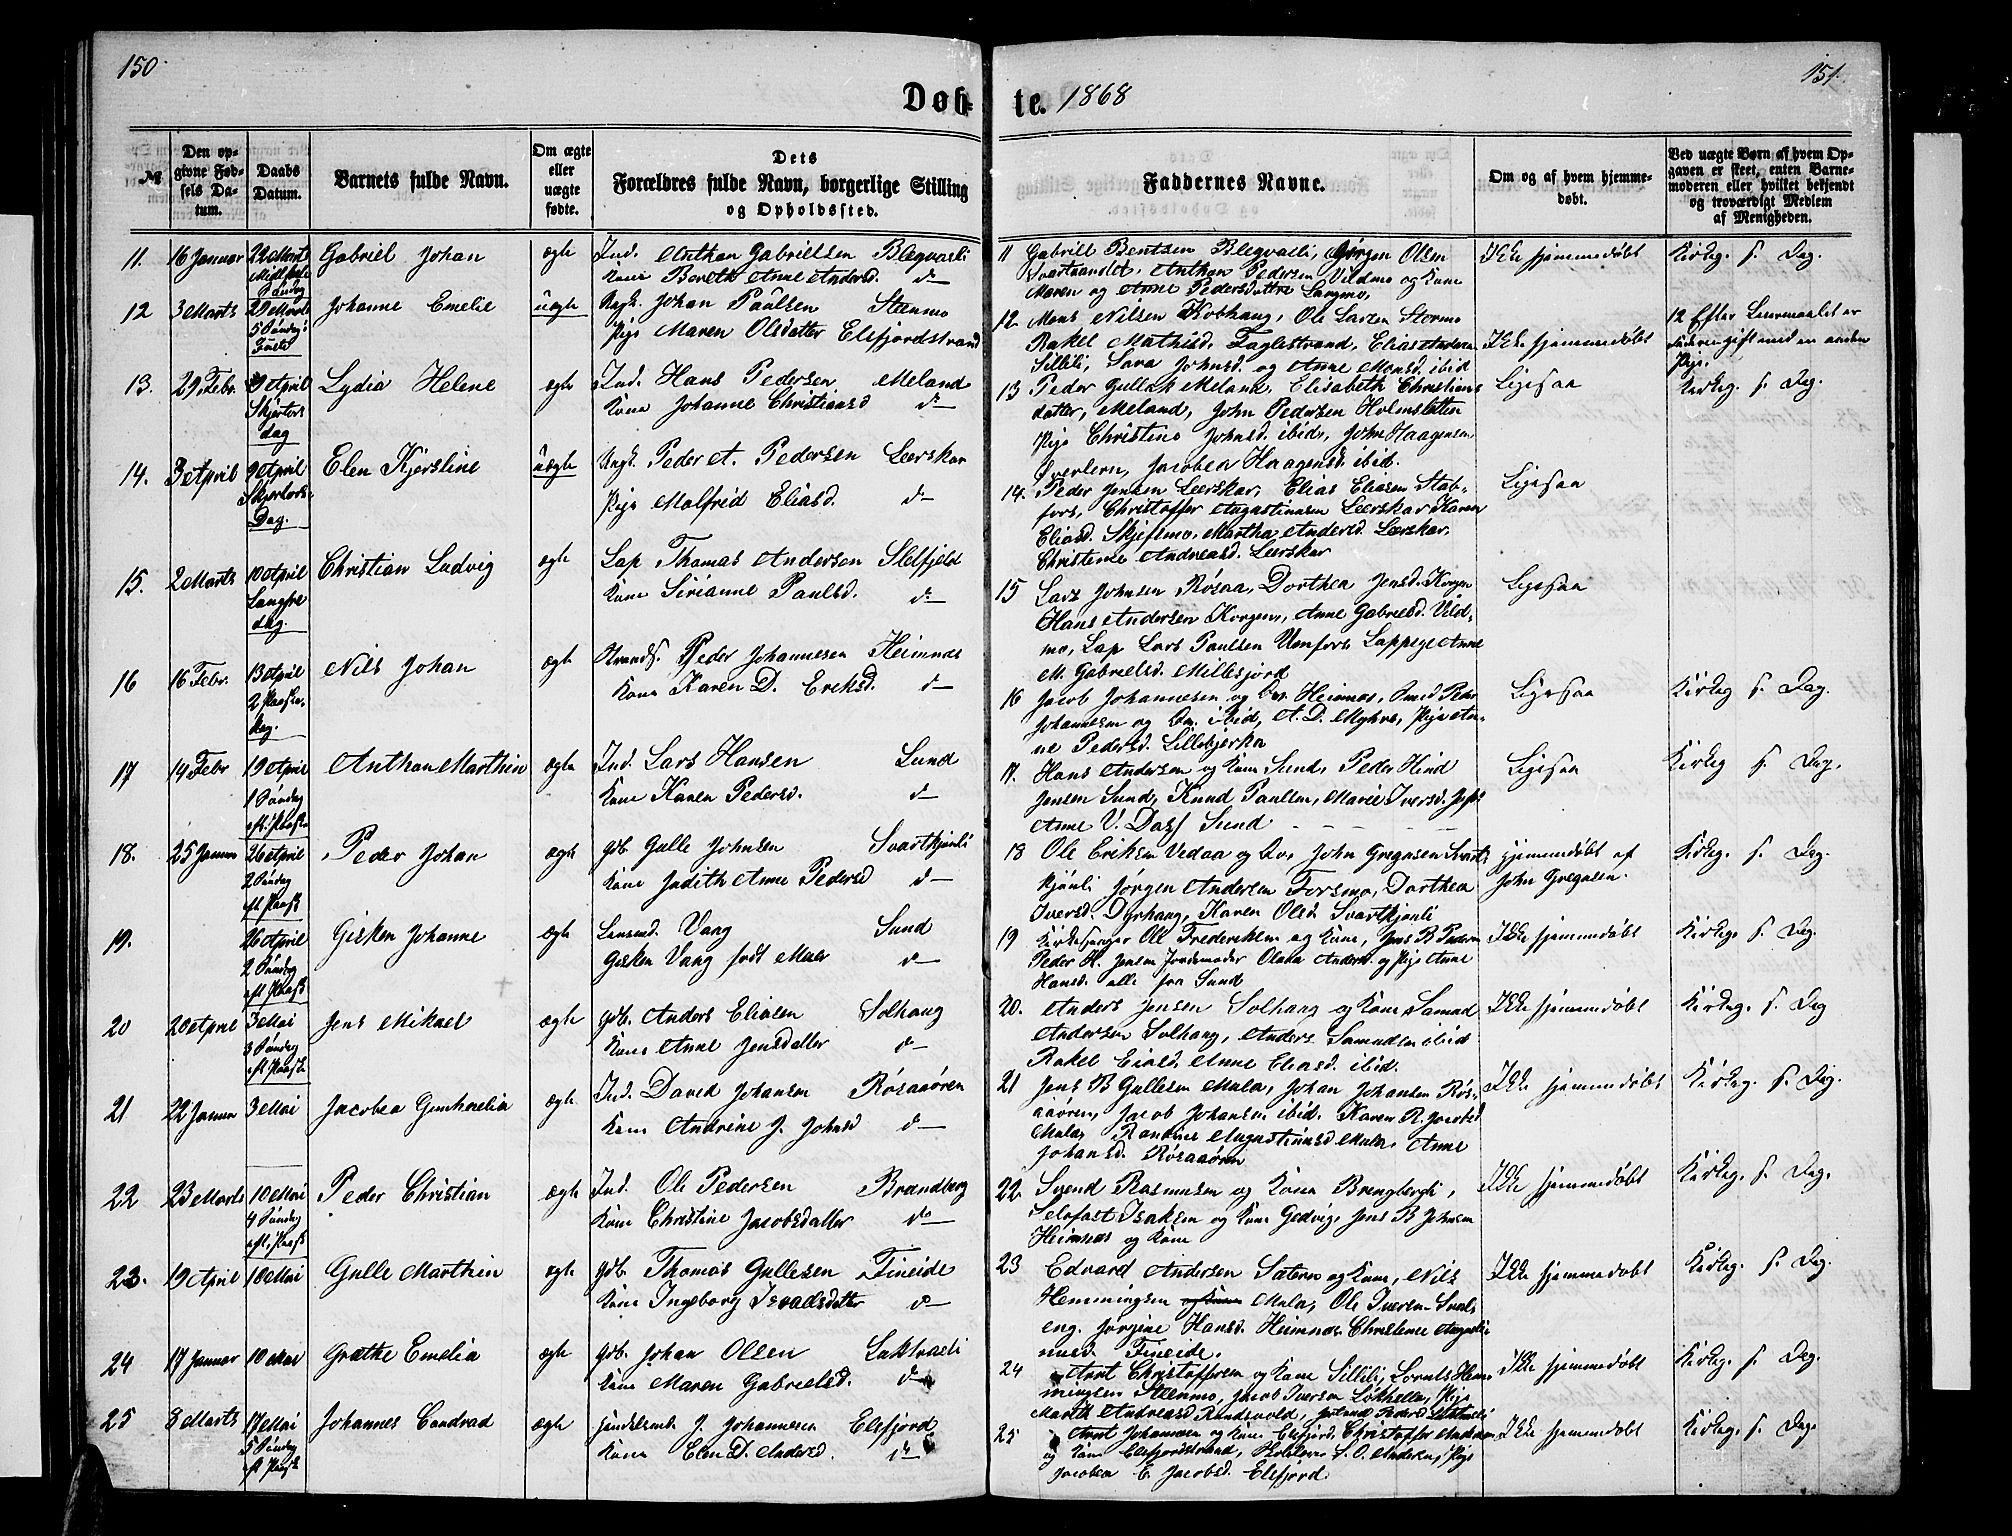 150
151
Døb-
te. 1868
№
Den op-
givne Fød-
sels Da-
tum.
Daabs
Datum.
Barnets fulde Navn.
Om ægte
eller
uægte
fødte.
Dets
Forældres fulde Navn, borgerlige Stilling
og Opholdssted.
Faddernes Navne.
Om og af hvem hjemme-
døbt.
Ved uægte Børn af hvem Op-
gaven er skeet, enten Barne-
moderen eller hvilket bekjendt
og troværdigt Medlem
af Menigheden.
11. 16 Januar 22 Marts Gabriel Johan ægte Ind. Anthon Gabrielsen Blegvasli
Kone Bereth Anne Andersd. do
11 Gabriel Bentsen Blegvasli, Jørgen Olsen
Svartvandet, Anthon Pedersen Vildmo og Kone
Maren og Anne Pedersdattre Langmo.
Ikke hjemmedøbt Kirkeg. s. Dag.
12 3 Marts 29 Marts Johanne Emelie uægte Ungk. Johan Paulsen Steenmo
5 Søndag i
Faste
Pige Maren Olsdatter Elsfjordstrand
12 Mons Nilsen Kobhaug, Ole Larsen Stormo
Rakel Mathisd. Faglestrand, Elias Andersen
Sillili, Sara Johnsd. og Anne Monsd. ibid
Ikke hjemmedøbt
12 Efter Leiermaalet er
Faderen gift med en anden
Pige.
13. 29 Febr. 9 April Lydia Helene ægte Ind. Hans Pedersen Meland
Skjærtors
dag
Kone Johanne Christiansd do
13 Peder Gullak Meland, Elisabeth Christians
datter, Meland, John Pedersen Holmsletten
Pige Christine Johnsd. ibid, John Haagensen
Sverleren, Jacobea Haagensd. ibid.
Ligesaa Kirkeg. s. Dag.
14. 3 April 9 April Elen Kjerstine uægte Ungk. Peder A. Pedersen Leerskar
Skjærtors-
Dag.
Pige Malfrid Eliasd. do
14. Peder Jensen Leerskar, Elias Eliasen Stab-
fors, Christoffer Augustinusen Leerskar, Karen
Eliasd. Skjefmo, Martha Andersd. Leerskar,
Christense Andreasd. Leerskar
Ligesaa
15. 2 Marts 10 April Christian Ludvig ægte Lap Thomas Andersen Sletfjeld
Langfre
dag.
Kone Sirianne Paulsd. do
15 Lars Johnsen, Røsaa, Dorthea Jensd. Korgen
Hans Andersen Korgen, Anne Gabrielsd. Vild-
mo, Lap Lars Paulsen Umfors, Lappepige Anne
M. Gabrielsd. Millesjord
Ligesaa
16 16 Febr. 13 April Nils Johan ægte Strands. Peder Johannesen Heimnes
2 Paaske-
dag.
Kone Karen D. Eriksd. do
16 Jacob Johannesen og Qv. Heimnes, Smed Peder
Johannesen og Qv. ibid, A. D. Myhre, Pige An-
ne Pedersd. Lillebjerka
Ligesaa Kirkeg s. Dag.
17 14 Febr 19 April Anthon Marthin ægte Ind. Lars Hansen Sund
1 Søndag
eft. Paaske
Kone Karen Pedersd. do
17. Hans Andersen og Kone Sund, Peder Hind
Jensen Sund, Knud Paulsen, Marie Iversd.
Anne V. Dass Sund
Ligesaa Kirkeg s. Dag.
18. 25 Januar 26 April Peder Johan ægte Gdb. Gulle Johnsen Svartkjønli
2 Søndag
eft Paaske
Kone Judith Anne Pedersd do
18 Ole Eriksen Vedaa og Qv., John Gregusen Svart-
kjønli, Jørgen Andersen Forsmo, Dorthea
Iversd. Dyrhaug, Karen Olsd. Svartkjønli
hjemmedøbt af
John Gregusen.
Kirkeg. s. Dag.
19. 26 April Gisken Johanne ægte Lensmd. Vang Sund
2 Søndag
eft Paaske
Gisken Vang født Moe do
19 Kirkesanger Ole Frederiksen og Kone, Jens B Peders.
Peder H. Jensen, Jordemoder Olava Andersd. og Pige Anne
Hansd. alle fra Sund
Ikke hjemmedøbt Kirkeg s. Dag.
20 20 April 3 Mai Jens Mikael ægte Gdb. Anders Eliasen Solhaug
3 Søndag
eft Paaske
Kone Anne Jensdatter do
20. Anders Jensen Solhaug og Kone, Samuel
Andersen Solhaug, Anders Samuelsen ibid
Rakel Eliasd. Anne Eliasd. ibid.
Ikke hjemmedøbt Kirkeg. s. Dag
21 22 Januar 3 Mai Jacobea Gunhaelia ægte Ind. David Johansen Røsaaøren
Kone Andrine J. Johnsd do
21 Jens B Gullesen Mula, Johan Johansen Røs-
aaøren, Jacob Johansen ibid. Karen R. Jacobsd
Mula, Randine Augustinusd Mula, Anne
Johansd. Røsaaøren
Ikke hjemmedøbt Kirkeg. s. Dag.
22 23 Marts 10 Mai Peder Christian ægte Ind. Ole Pedersen Brandberg
4 Søndag
eft. Paaske
Kone Christine Jacobsdatter do
22. Svend Rasmusen og Kone Brengbergli,
Selafast Isaksen og Kone Gedvig, Jens B Johnsen
Heimnes og Kone
Ikke hjemmedøbt Kirkeg. s. Dag.
23. 19 April 10 Mai Gulle Marthin ægte Gdb. Thomas Gullesen Fineide
Kone Ingeborg Israelsdatter do
23 Edvard Andersen Sæteren og Kone, Nils
Hemmingsen Mula, Ole Iversen Svol-
eng. Jørgine Hansd. Heimnes, Christense Augusti-
nusd. Fineide.
Ikke hjemmedøbt Kirkeg. s. Dag.
24 17 Januar 10 Mai Grethe Emelia ægte Gdb. Johan Olsen Luktvasli
Kone Maren Gabrielsd. do
24 Arnt Christoffersen og Kone Sillili, Lornts Hem-
mingsen Steenmo, Jacob Iversen Løkhellen, Pige
Marith Andreasd Randsvold, Pedersd Luktvasli
Ikke hjemmedøbt Kirkeg. s. Dag.
25 8 Marts 17 Mai Johannes Condrad ægte Handelsmd. J. Johannesen Elsfjord
5 Søndag
eft Paaske
Kone Elen D. Andersd. do
25 Arnt Johannesen og Kone Elsfjord, Christoffer Andersen
og Kone Elsfjordstrand, Skolelærer S. O. Anderaa, Pige
Jacobea E. Jacobsd. Elsfjord.
Ikke hjemmedøbt Kirkeg. s. Dag.